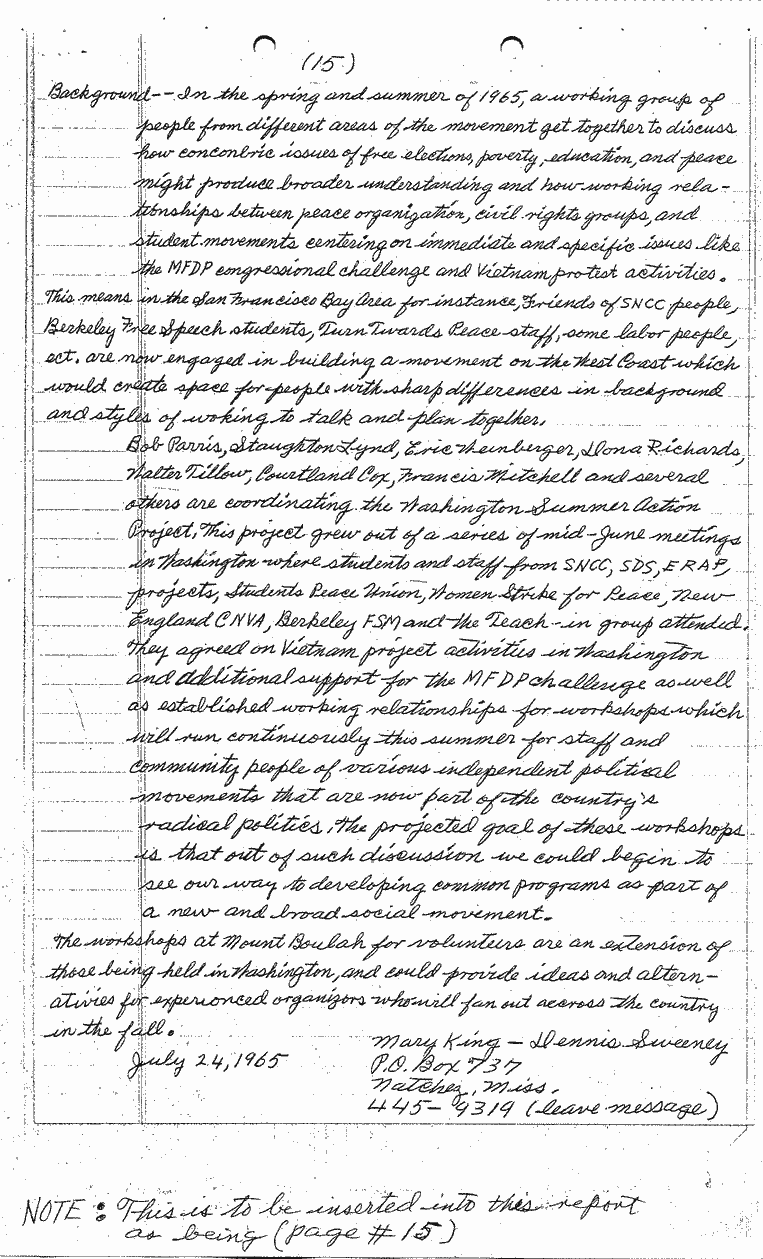 (15)
Background -- In the spring and summer of 1965, a working group of
people from different areas of the movement get together to discuss
how conconbric issues of free elections, poverty, education, and peace
might produce broader understanding and how working rela-
tionships between peace organization, civil rights groups, and
student movements centering on immediate and specific issues like
the MFDP congressional challenge and Vietnam protest activities.
This means in the San Francisco Bay Area for instance, Friends of SNCC people,
Berkeley Free Speech students, Turn Twards Peace staff, some labor people,
ect. are now engaged in building a movement on the West Coast which
would create space for people with sharp differences in background
and styles of woking to talk and plan together.
Bob Parris, Staughton Lynd, Eric Weinberger, Dona Richards,
Walter Tillow, Courtland Cox, Francis Mitchell and several
others are coordinating the Washington Summer Action
Project. This project grew out of a series of mid-June meetings
in Washington where students and staff from SNCC, SDS, ERAP,
projects, Students Peace Union, Women Strike for Peace, New
England CNVA, Berkeley FSM and the Teach-in group attended.
They agreed on Vietnam project activities in Washington
and additional support for the MFDP challenge as well
as established working relationships for workshops which
will run continuously this summer for staff and
community people of various independent political
movements that are now part of the country's
radical politics. The projected goal of these workshops
is that out of such discussion we could begin to
see our way to developing common programs as part of
a new and broad social movement.
The workshops at Mount Boulah for volunturs are an extension of
those being held in Washington, and could provide ideas and altern-
ativies for experienced organizors who will fan out accross the country
in the fall.
July 24, 1965
Mary King - Dennis Sweeney
P.O. Box 737
Natchez, Miss.
445-9319 (leave message)
NOTE: This is to be inserted into this report
as being (page # 15)